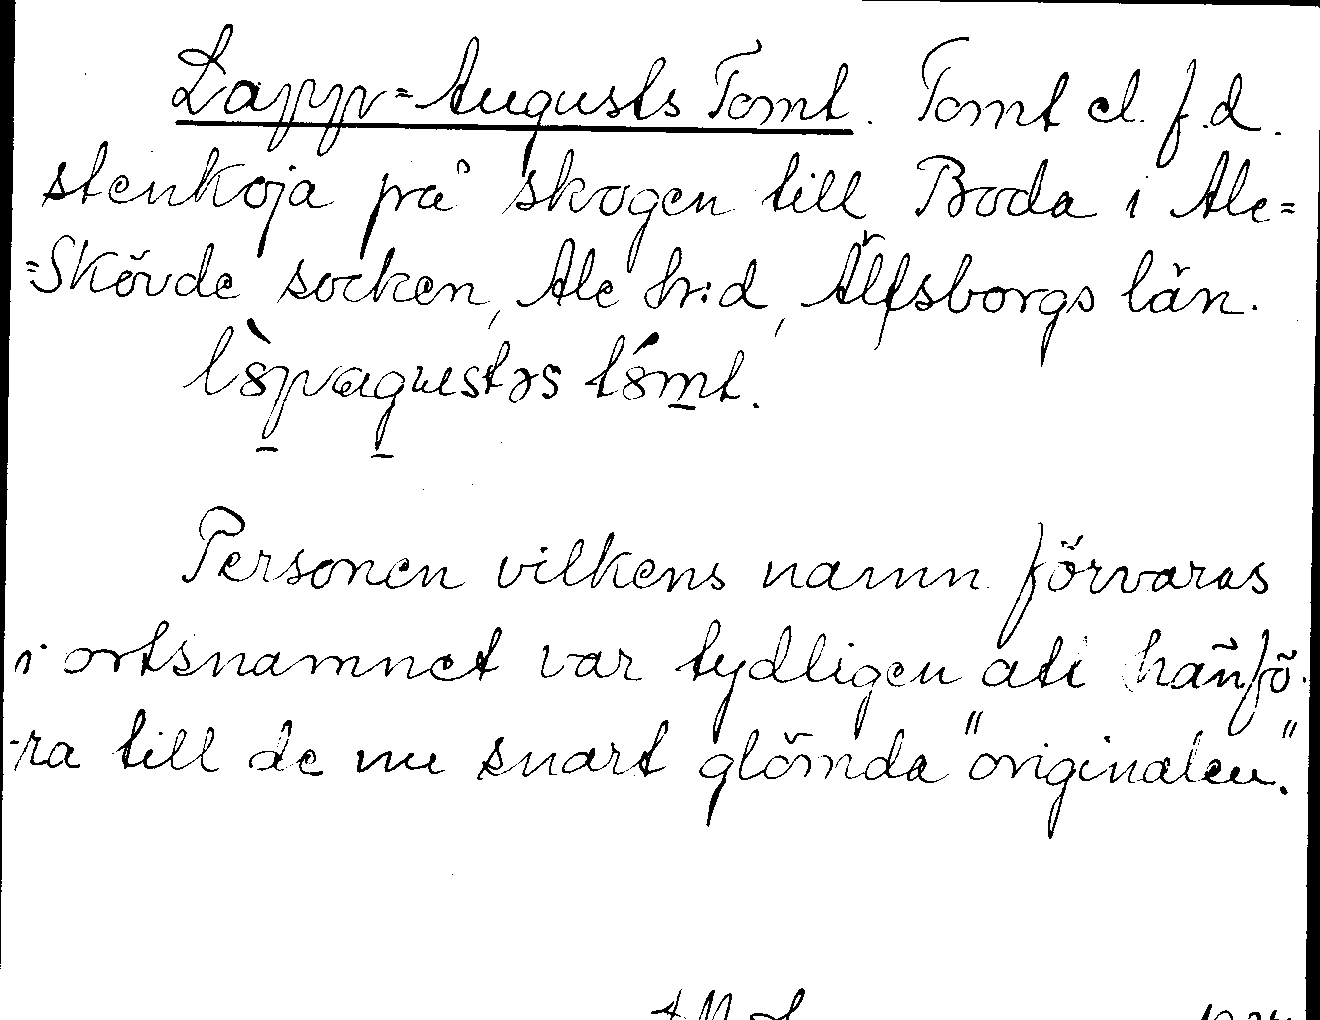 Lapp-Augusts Tomt. Tomt el. f.d.
stenkoja på skogen till Boda i Ale=
=Skövde socken, Ale hr:d, Älfsborgs län.
Personen vilkens namn förvaras
i ortsnamnet var tydligen att hänfö-
-ra till de nu snart glömda "originalen."